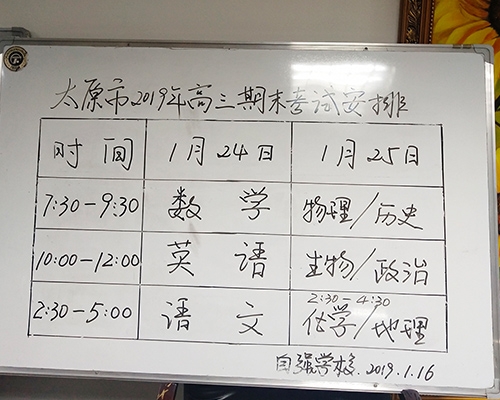 太原市2019年高三期末考试安排
时间 1月24日 1月25日
7:30-9:30 数学 物理/历史
10:00-12:00 英语 生物/政治
2:30-4:30
2:30-5:00 语文 化学/地理
自强学校.2019.1.16